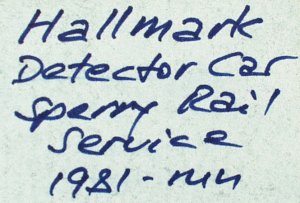 Hallmark
Detector Car
Sperry Rail
Service
1981-